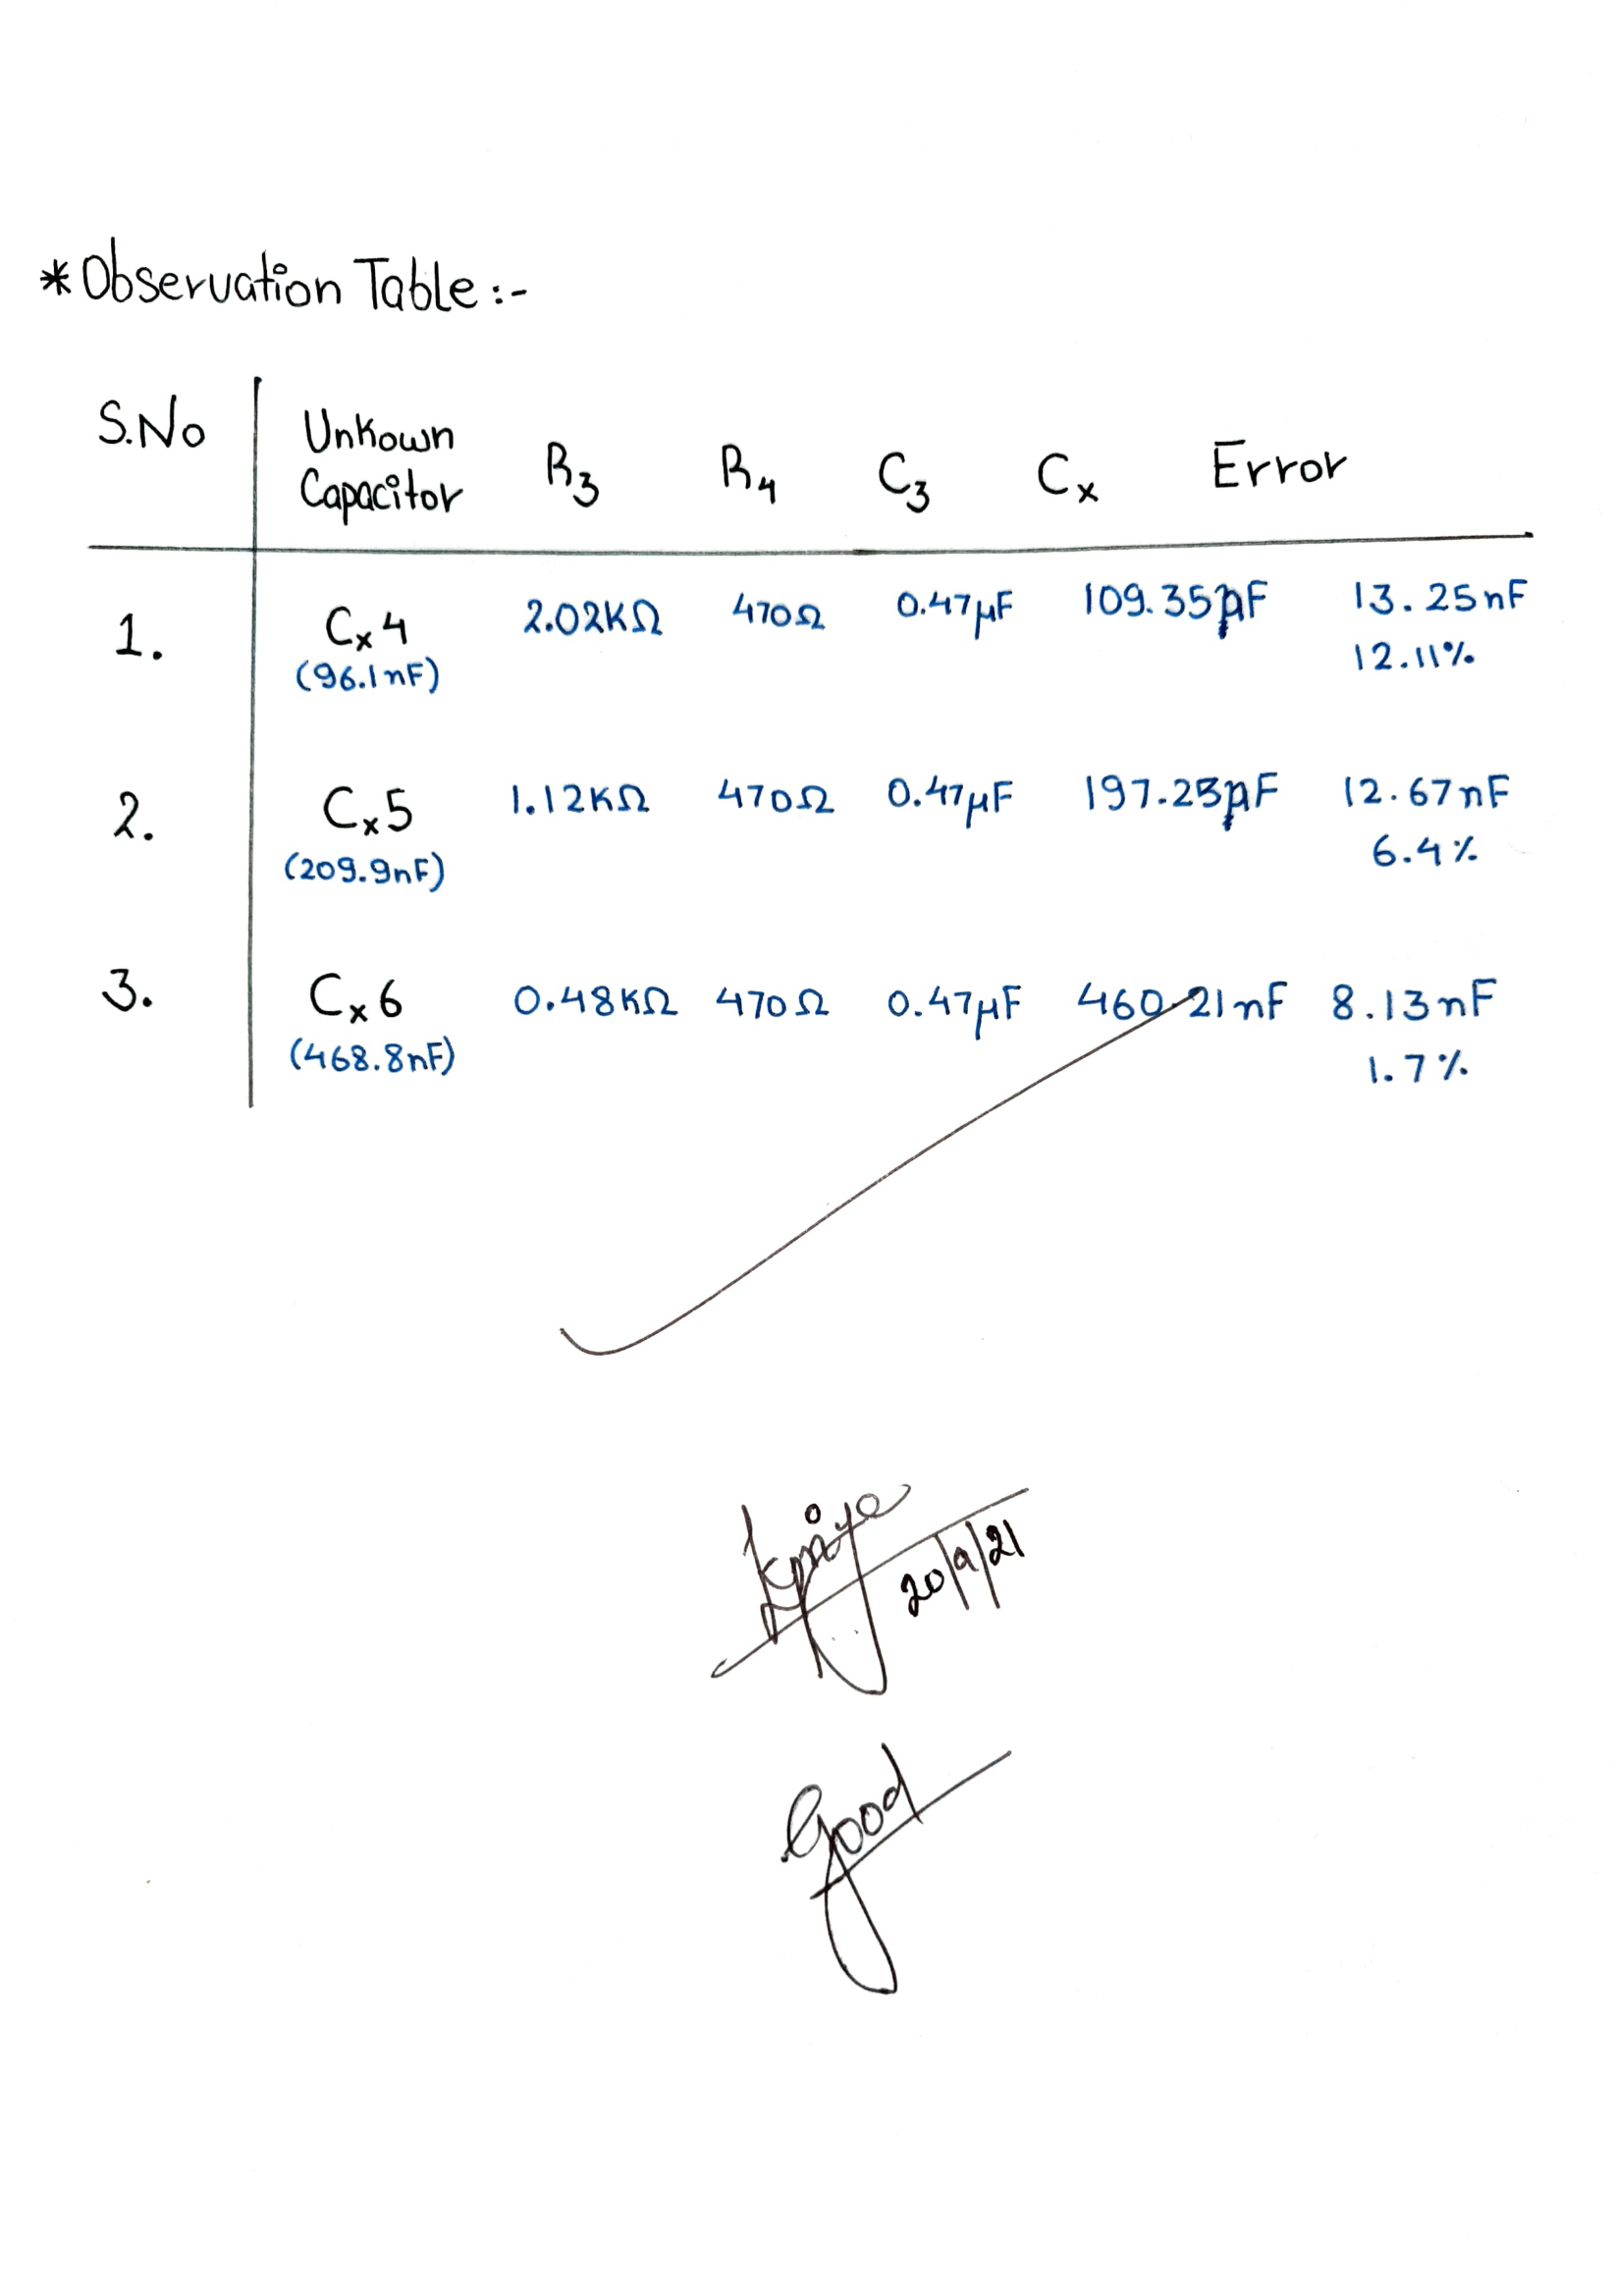 *Observation Table:-
S.No Unkown Capacitor R3 R4 C3 Cx Error
1. Cx4 2.02KΩ 470Ω 0.47μF 109.35nF 13.25nF
(96.1nF) 12.11%
2. Cx5 1.12KΩ 470Ω 0.47μF 197.23nF 12.67nF
(209.9nF) 6.4%
3. Cx6 0.48KΩ 470Ω 0.47μF 460.21nF 8.13nF
(468.8nF) 1.7%
20/9/21
Good